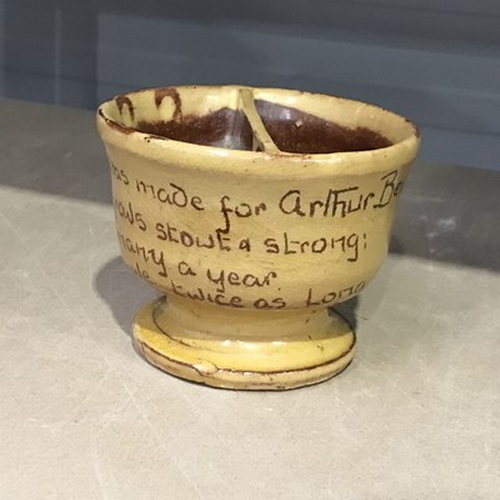 was made for Arthur Be
stout & strong:
many a year
twice as Long